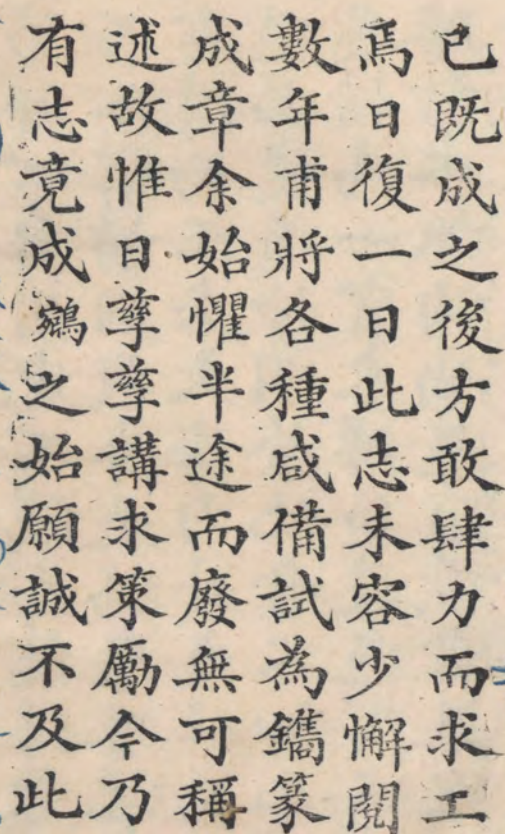 已既成之後方敢肆力而求工
焉日復一日此志未容少懈閱
數年甫將各種咸備試為鐫篆
成章余始懼半途而廢無可稱
述故惟日孳孳講求策勵今乃
有志竟成鵷之始願誠不及此